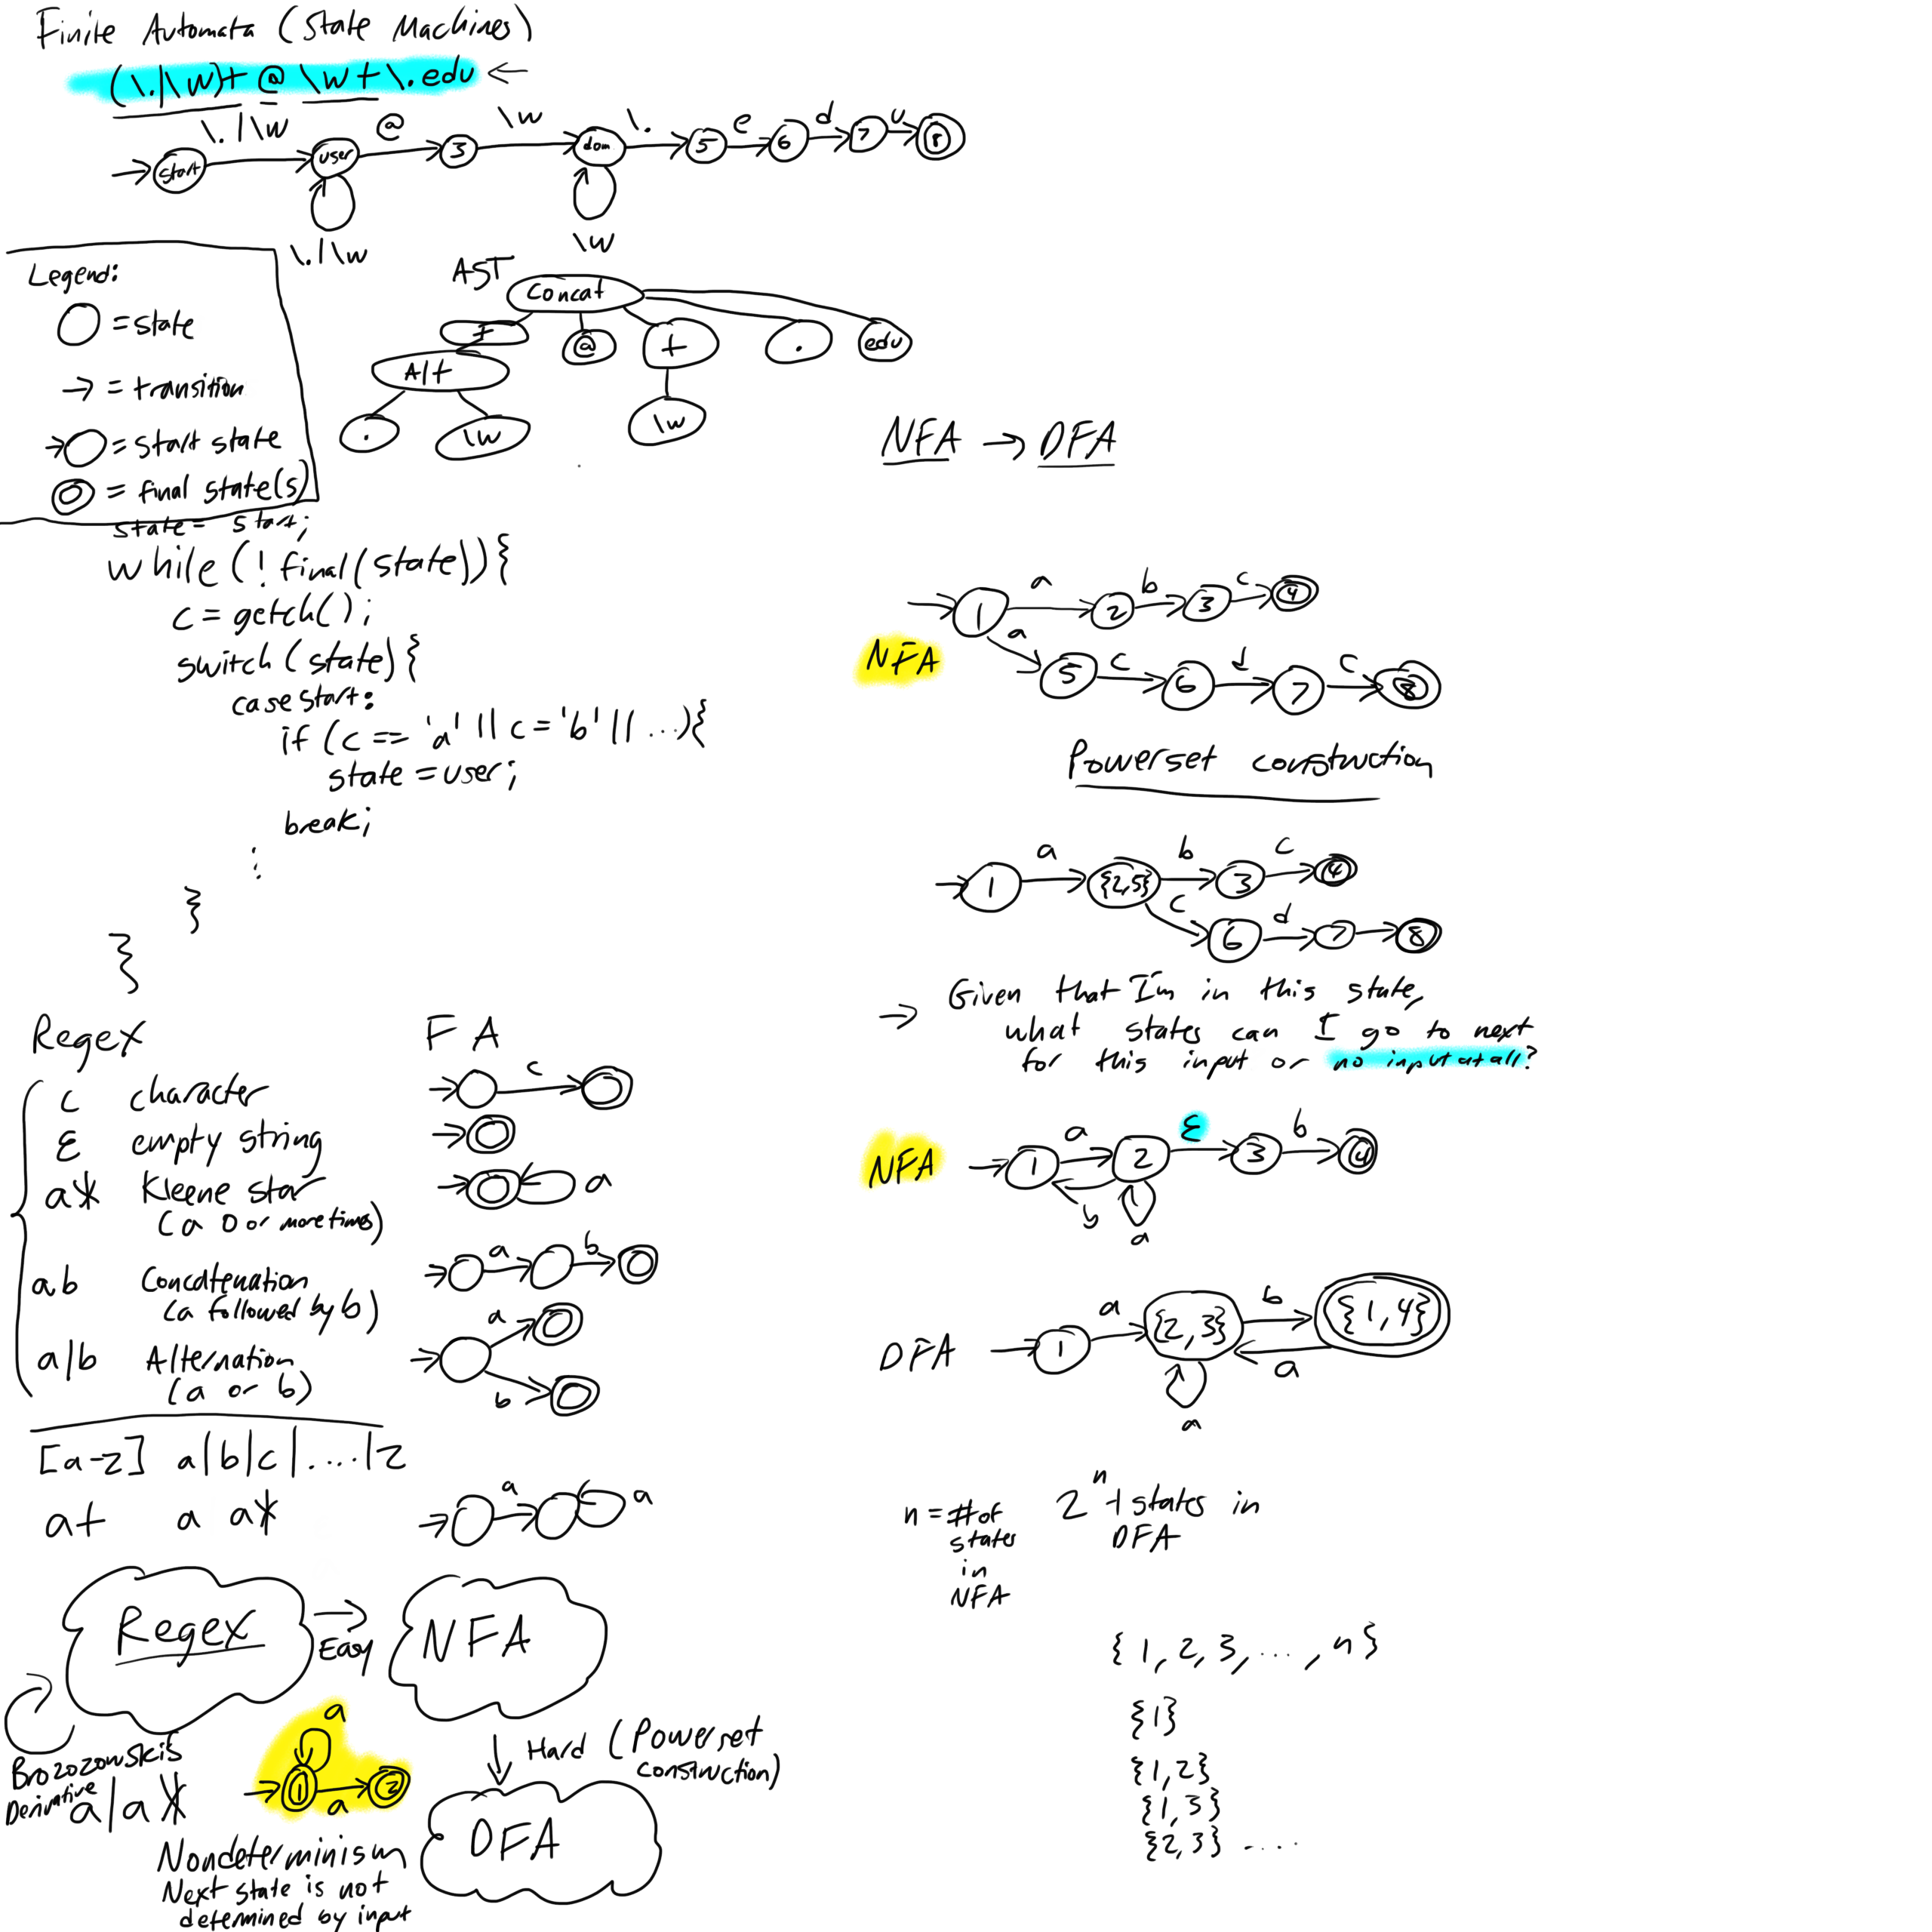 Finite Automata (State Machines)
(\.|\w)+ @ \w+ \.edu ←
\.|\w @ \w \. e d u
start user 3 dom 5 6 7 8
\.|\w \w
Legend:
= state
→ = transition
= start state
= final state(s)
AST
Concat
+ @ + . edu
Alt
. \w \w
state = start;
while (! final(state)){
c = getch();
switch (state){
case start:
if (c == 'a' || c = 'b' || ...){
state = user;
break;
:
}
}
Regex FA
c character c
ε empty string
a* Kleene star a
(a 0 or more times)
ab Concatenation a b
(a followed by b)
a|b Alternation a b
(a or b)
[a-z] a|b|c|....|z
a+ a a* a a
Regex → NFA
Easy
Brozozowski's
Derivative
a|a*
a
1 a 2
Nondeterminism
Next state is not
determined by input
Hard (Powerset
construction)
DFA
NFA → DFA
1 a 2 b 3 c 4
NFA
a 5 c 6 d 7 c 8
Powerset construction
1 a {2,5} b 3 c 4
c 6 d 7 8
→ Given that I'm in this state,
what states can I go to next
for this input or no input at all?
NFA 1 a 2 ε 3 b 4
b a
DFA 1 a {2,3} b {1,4}
a
a
n = # of
states
in
NFA
2ⁿ-1 states in
DFA
{1, 2, 3, ..., n}
{1}
{1,2}
{1,3}
{2,3} ....